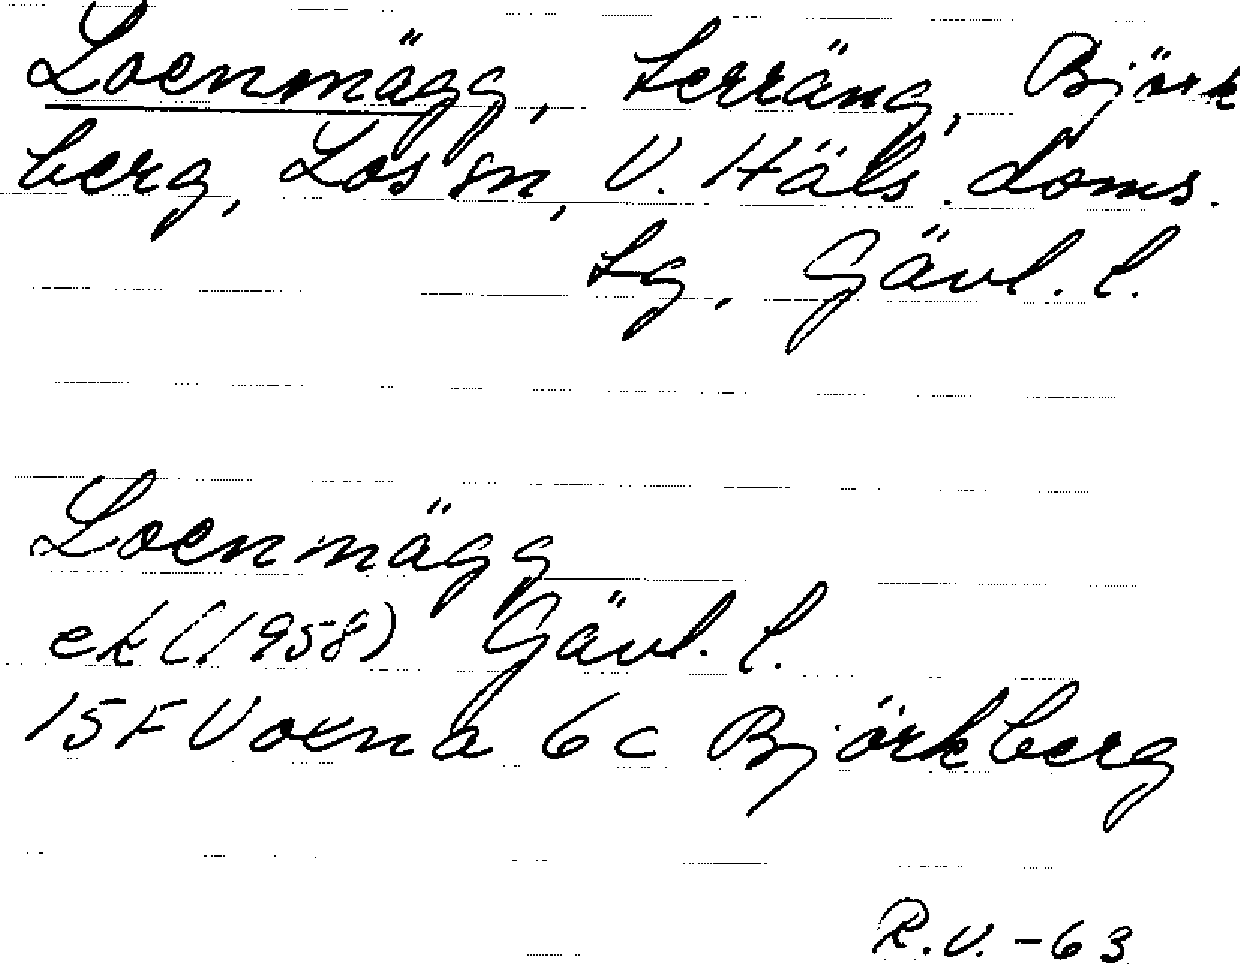 Loenmägg, terräng, Björk
berg, Los sn, V. Häls. doms.
tg, Gävl. l.
Loenmägg
ek (1958) Gävl. l.
15F Voxna 6c Björkberg
R.V. -63